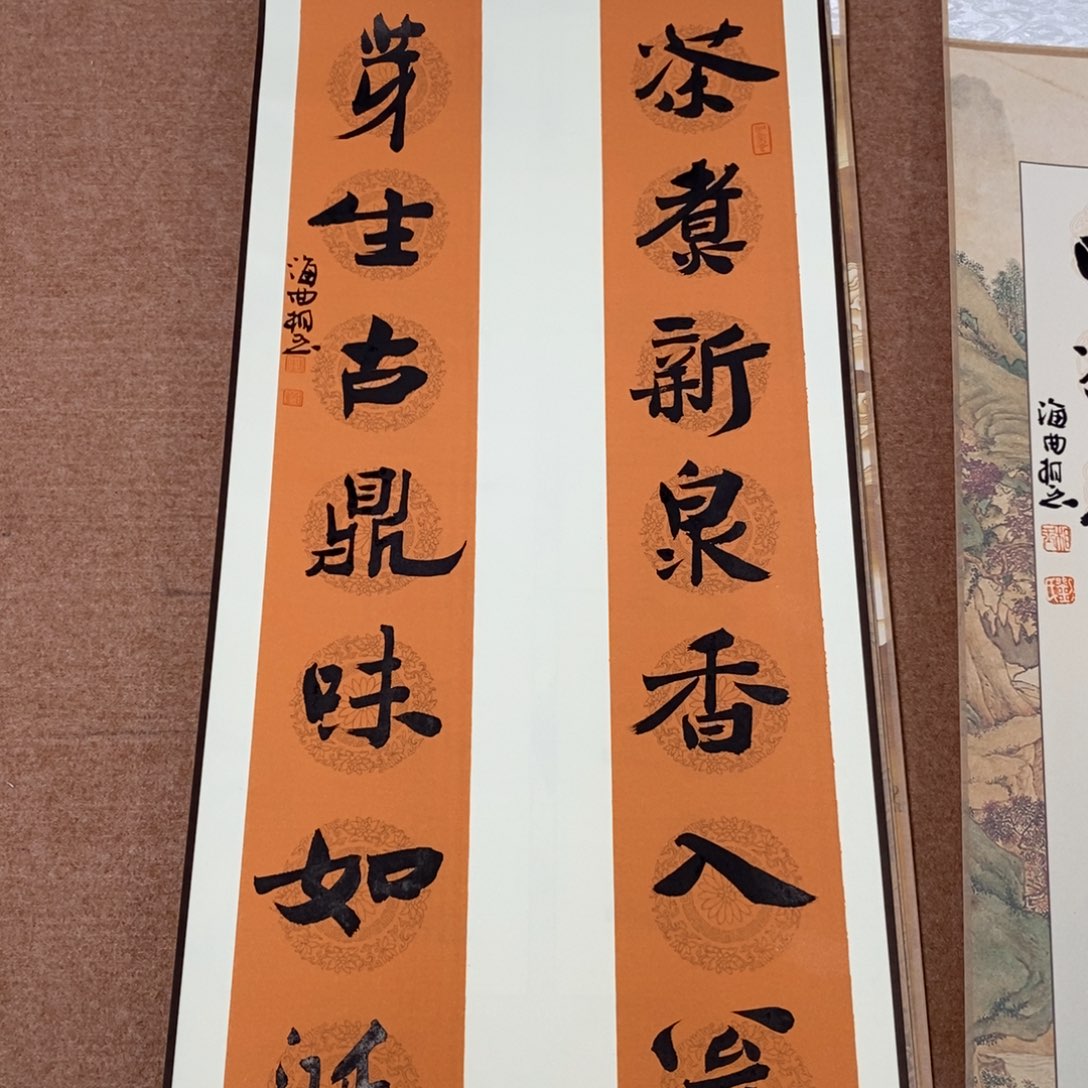 茶煮新泉香入
芽生古鼎味如
海曲栩之
海曲栩之